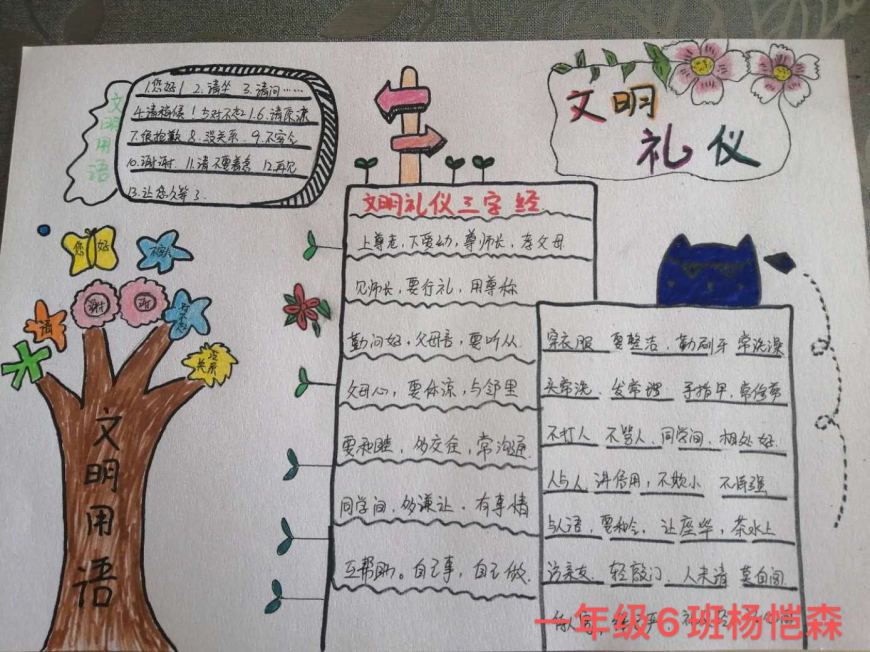 文明用语
1.您好! 2.请坐 3.请问……
4.请稍候! 5.对不起! 6.请原谅
7.很抱歉 8.没关系. 9.不客气
10.谢谢. 11.请不要着急 12.再见
13.让您久等了.
文明
礼仪
文明礼仪三字经
上尊老,下爱幼,尊师长,孝父母
见师长,要行礼,用尊称
勤问好,父母言,要听从
父母心,要体谅,与邻里
要和睦,多交往,常沟通.
同学间,多谦让.有事情
互帮助。自己事,自己做.
穿衣服 要整洁.勤刷牙 常洗澡
头常洗.发常理 手指甲,常修剪
不打人 不骂人.同学间,相处好.
人与人 讲信用,不欺小 不恃强
与人语,要和气.让座毕,茶水上
访亲友 轻敲门.人未请 莫自闯
您好
不客气
请
谢
谢
对不起
没关系
文明用语
一年级6班杨恺森